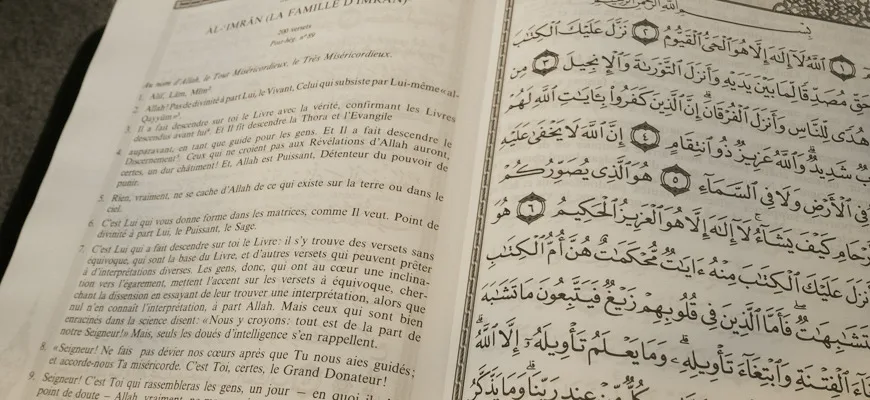 AL-'IMRÂN (LA FAMILLE D'IMRAN)
200 versets
Post-hég. n° 89
Au nom d'Allah, le Tout Miséricordieux, le Très Miséricordieux.
1. Alif, Lâm, Mîm.
2. Allah! Pas de divinité à part Lui, le Vivant, Celui qui subsiste par Lui-même «al-
Qayyûm».
3. Il a fait descendre sur toi le Livre avec la vérité, confirmant les Livres
descendus avant lui. Et Il fit descendre la Thora et l'Evangile
4. auparavant, en tant que guide pour les gens. Et Il a fait descendre le
Discernement. Ceux qui ne croient pas aux Révélations d'Allah auront,
certes, un dur châtiment! Et, Allah est Puissant, Détenteur du pouvoir de
punir.
5. Rien, vraiment, ne se cache d'Allah de ce qui existe sur la terre ou dans le
ciel.
6. C'est Lui qui vous donne forme dans les matrices, comme Il veut. Point de
divinité à part Lui, le Puissant, le Sage.
7. C'est Lui qui a fait descendre sur toi le Livre: il s'y trouve des versets sans
équivoque, qui sont la base du Livre, et d'autres versets qui peuvent prêter
à d'interprétations diverses. Les gens, donc, qui ont au cœur une inclina-
tion vers l'égarement, mettent l'accent sur les versets à équivoque, cher-
chant la dissension en essayant de leur trouver une interprétation, alors que
nul n'en connaît l'interprétation, à part Allah. Mais ceux qui sont bien
enracinés dans la science disent: «Nous y croyons: tout est de la part de
notre Seigneur!» Mais, seuls les doués d'intelligence s'en rappellent.
8. «Seigneur! Ne fais pas dévier nos cœurs après que Tu nous aies guidés;
et accorde-nous Ta miséricorde. C'est Toi, certes, le Grand Donateur!
9. Seigneur! C'est Toi qui rassembleras les gens, un jour – en quoi il
point de doute – Allah, vraiment, ne
١ ٱللَّهُ لَآ إِلَٰهَ إِلَّا هُوَ ٱلْحَىُّ ٱلْقَيُّومُ ٢ نَزَّلَ عَلَيْكَ ٱلْكِتَٰبَ
مُصَدِّقًا لِّمَا بَيْنَ يَدَيْهِ وَأَنزَلَ ٱلتَّوْرَىٰةَ وَٱلْإِنجِيلَ ٣ مِن
هُدًى لِّلنَّاسِ وَأَنزَلَ ٱلْفُرْقَانَ إِنَّ ٱلَّذِينَ كَفَرُوا۟ بِـَٔايَٰتِ ٱللَّهِ لَهُمْ
شَدِيدٌ وَٱللَّهُ عَزِيزٌ ذُو ٱنتِقَامٍ ٤ إِنَّ ٱللَّهَ لَا يَخْفَىٰ عَلَيْهِ
فِى ٱلْأَرْضِ وَلَا فِى ٱلسَّمَآءِ ٥ هُوَ ٱلَّذِى يُصَوِّرُكُمْ
كَيْفَ يَشَآءُ لَآ إِلَٰهَ إِلَّا هُوَ ٱلْعَزِيزُ ٱلْحَكِيمُ ٦ هُوَ
أَنزَلَ عَلَيْكَ ٱلْكِتَٰبَ مِنْهُ ءَايَٰتٌ مُّحْكَمَٰتٌ هُنَّ أُمُّ ٱلْكِتَٰبِ
فَأَمَّا ٱلَّذِينَ فِى قُلُوبِهِمْ زَيْغٌ فَيَتَّبِعُونَ مَا تَشَٰبَهَ
ٱلْفِتْنَةِ وَٱبْتِغَآءَ تَأْوِيلِهِۦ وَمَا يَعْلَمُ تَأْوِيلَهُۥٓ إِلَّا ٱللَّهُ
كُلٌّ مِّنْ عِندِ رَبِّنَا وَمَا يَذَّكَّرُ